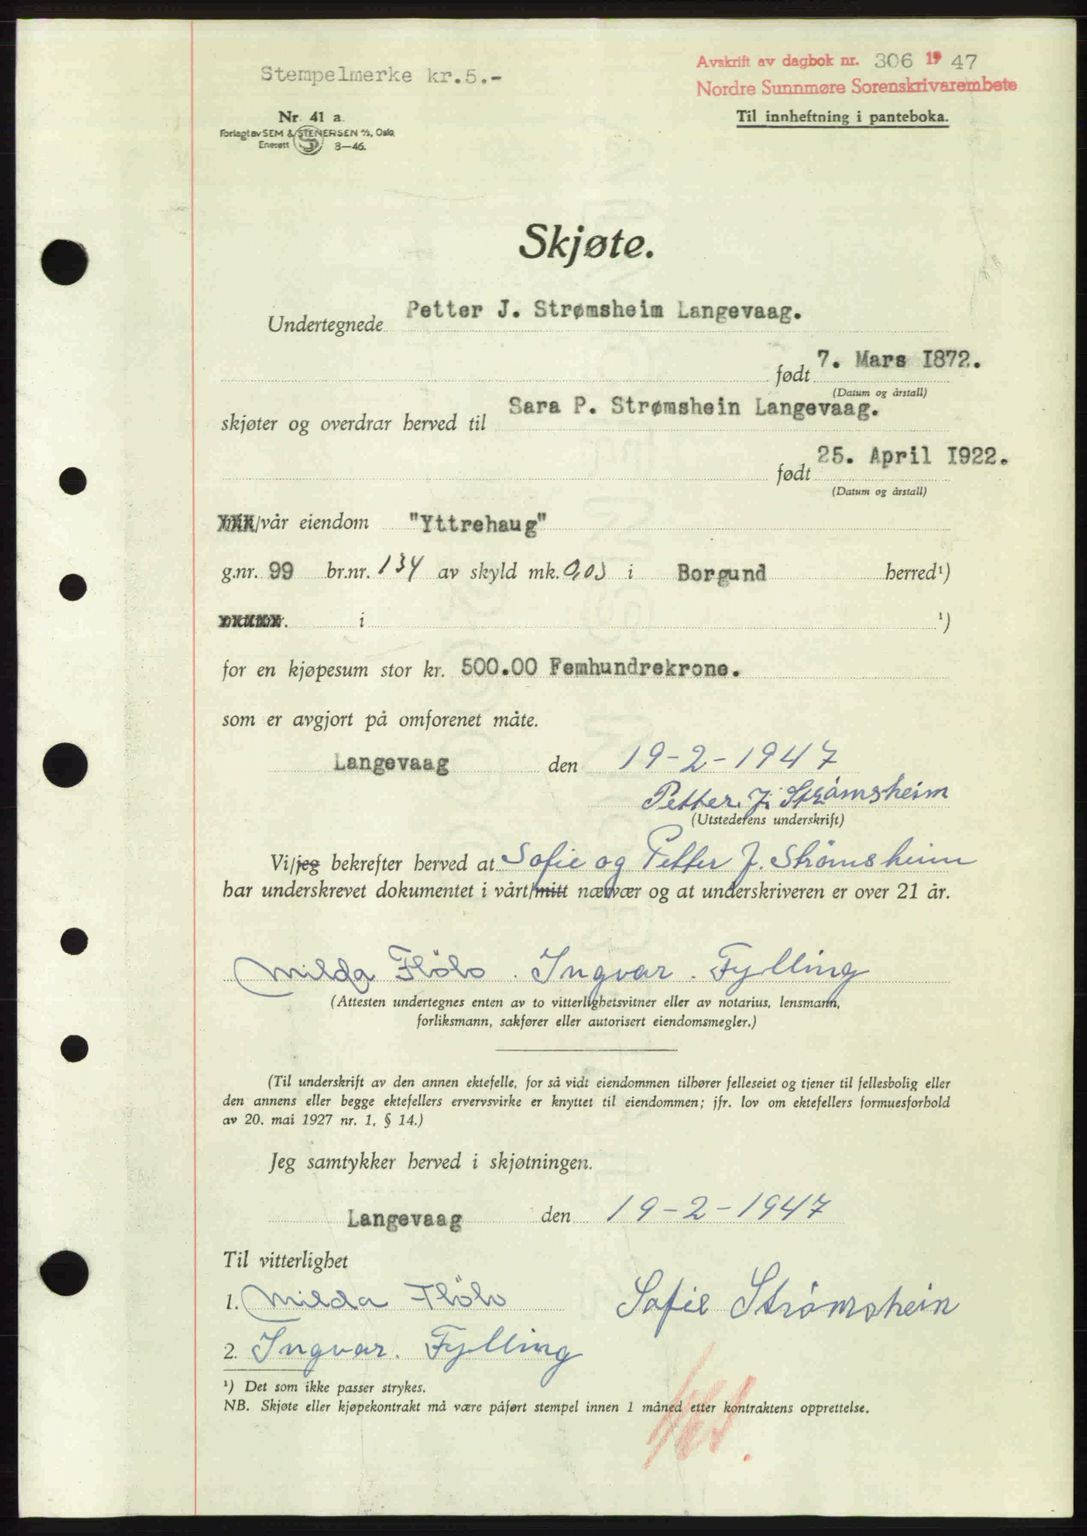 Stempelmerke kr.5.-
Avskrift av dagbok nr. 306 19 47
Nordre Sunnmøre Sorenskrivarembete
Til innheftning i panteboka.
Nr. 41 a.
Forlagt av SEM & STENERSEN A/S, Oslo.
Enerett 8—46.
Skjøte.
Undertegnede Petter J. Strømsheim Langevaag.
født 7. Mars I872.
(Datum og årstall)
skjøter og overdrar herved til Sara P. Strømshein Langevaag.
født 25. April I922.
(Datum og årstall)
/vår eiendom "Yttrehaug"
g.nr. 99 br.nr. 134 av skyld mk. 0,03 i Borgund herred¹)
i ¹)
for en kjøpesum stor kr. 500.00 Femhundrekrone.
som er avgjort på omforenet måte.
Langevaag den 19-2-1947
Petter. J. Strømsheim
(Utstederens underskrift)
Vi/jeg bekrefter herved at Sofie og Petter J. Strømsheim
har underskrevet dokumentet i vårt/mitt nærvær og at underskriveren er over 21 år.
Milda Flölo. Ingvar. Fylling
(Attesten undertegnes enten av to vitterlighetsvitner eller av notarius, lensmann,
forliksmann, sakfører eller autorisert eiendomsmegler.)
(Til underskrift av den annen ektefelle, for så vidt eiendommen tilhører felleseiet og tjener til fellesbolig eller
den annens eller begge ektefellers ervervsvirke er knyttet til eiendommen; jfr. lov om ektefellers formuesforhold
av 20. mai 1927 nr. 1, § 14.)
Jeg samtykker herved i skjøtningen.
Langevaag den 19-2-1947
Til vitterlighet
1. Milda Flölo Sofie Strømshein
2. Ingvar. Fylling
¹) Det som ikke passer strykes.
NB. Skjøte eller kjøpekontrakt må være påført stempel innen 1 måned etter kontraktens opprettelse.